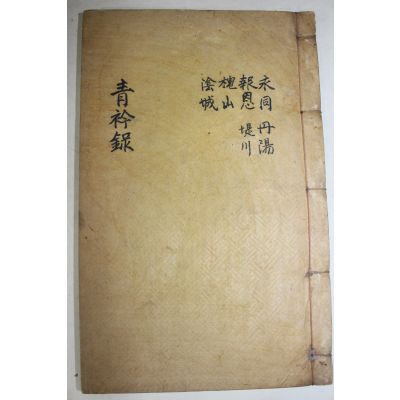 永同 丹湯
報恩 堤川
槐山
陰城
青衿錄